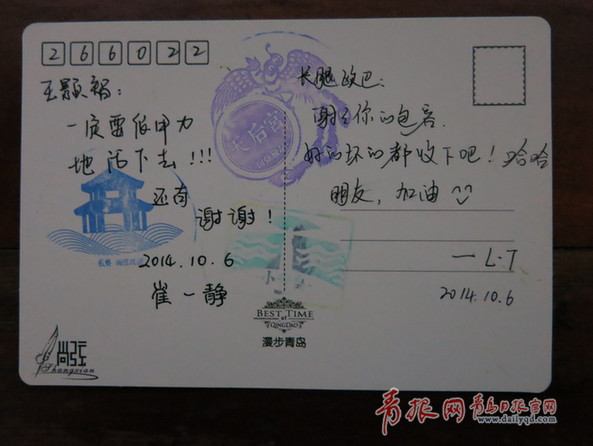 266022
王颢锡：
一定要很用力
地活下去!!!
还有
谢谢!
2014.10.6
崔一静
天后宫
长腿欧巴：
谢谢你的包容.
好的坏的都收下吧！哈哈
朋友，加油
—L.T
2014.10.6
BEST TIME
of
QINGDAO
漫步青岛
尚弦
Shangxian
青报网 青岛日报官网
www.dailyqd.com